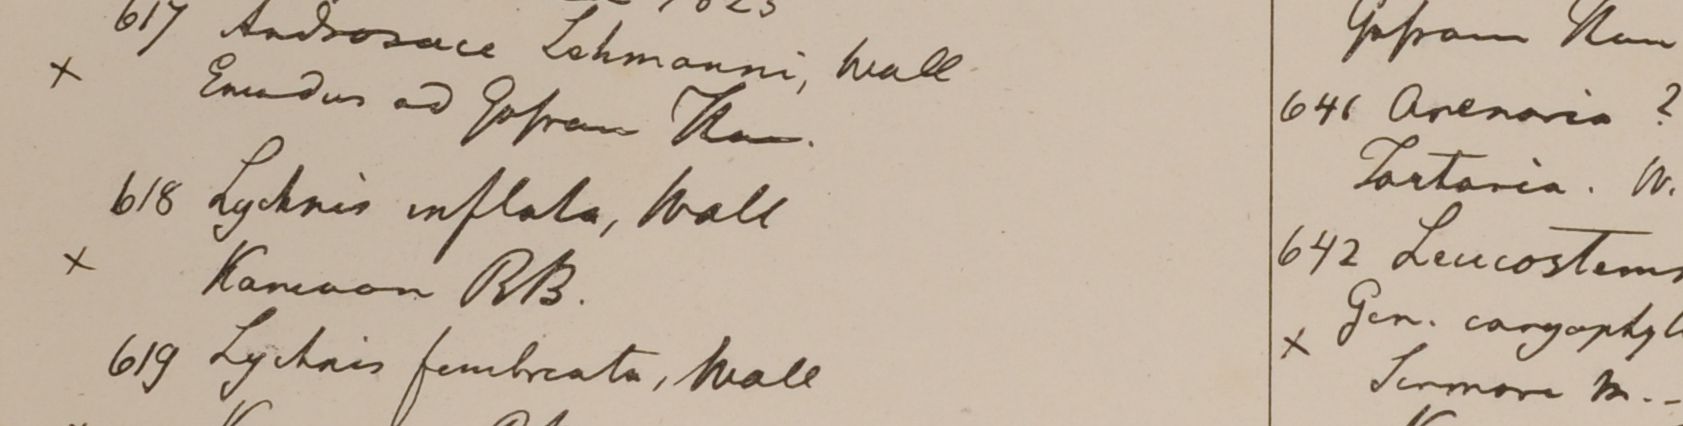 617 Androsace Lehmanni, Wall
x Emodus ad Gossam Than.
618 Lychnis inflata, Wall
x Kamaon RB.
619 Lychnis fimbriata, Wall
641 Arenaria ?
Tartaria. W.
642 Leucostem
Gen. caryophyl
x Sirmore